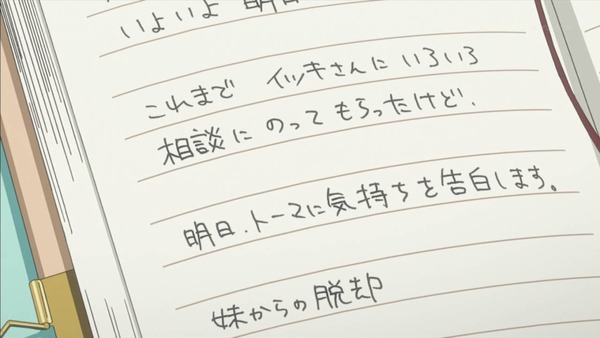 いよいよ 明日
これまで イッキさんに いろいろ
相談に のって もらったけど、
明日、トーマに気持ちを告白します。
妹からの脱却